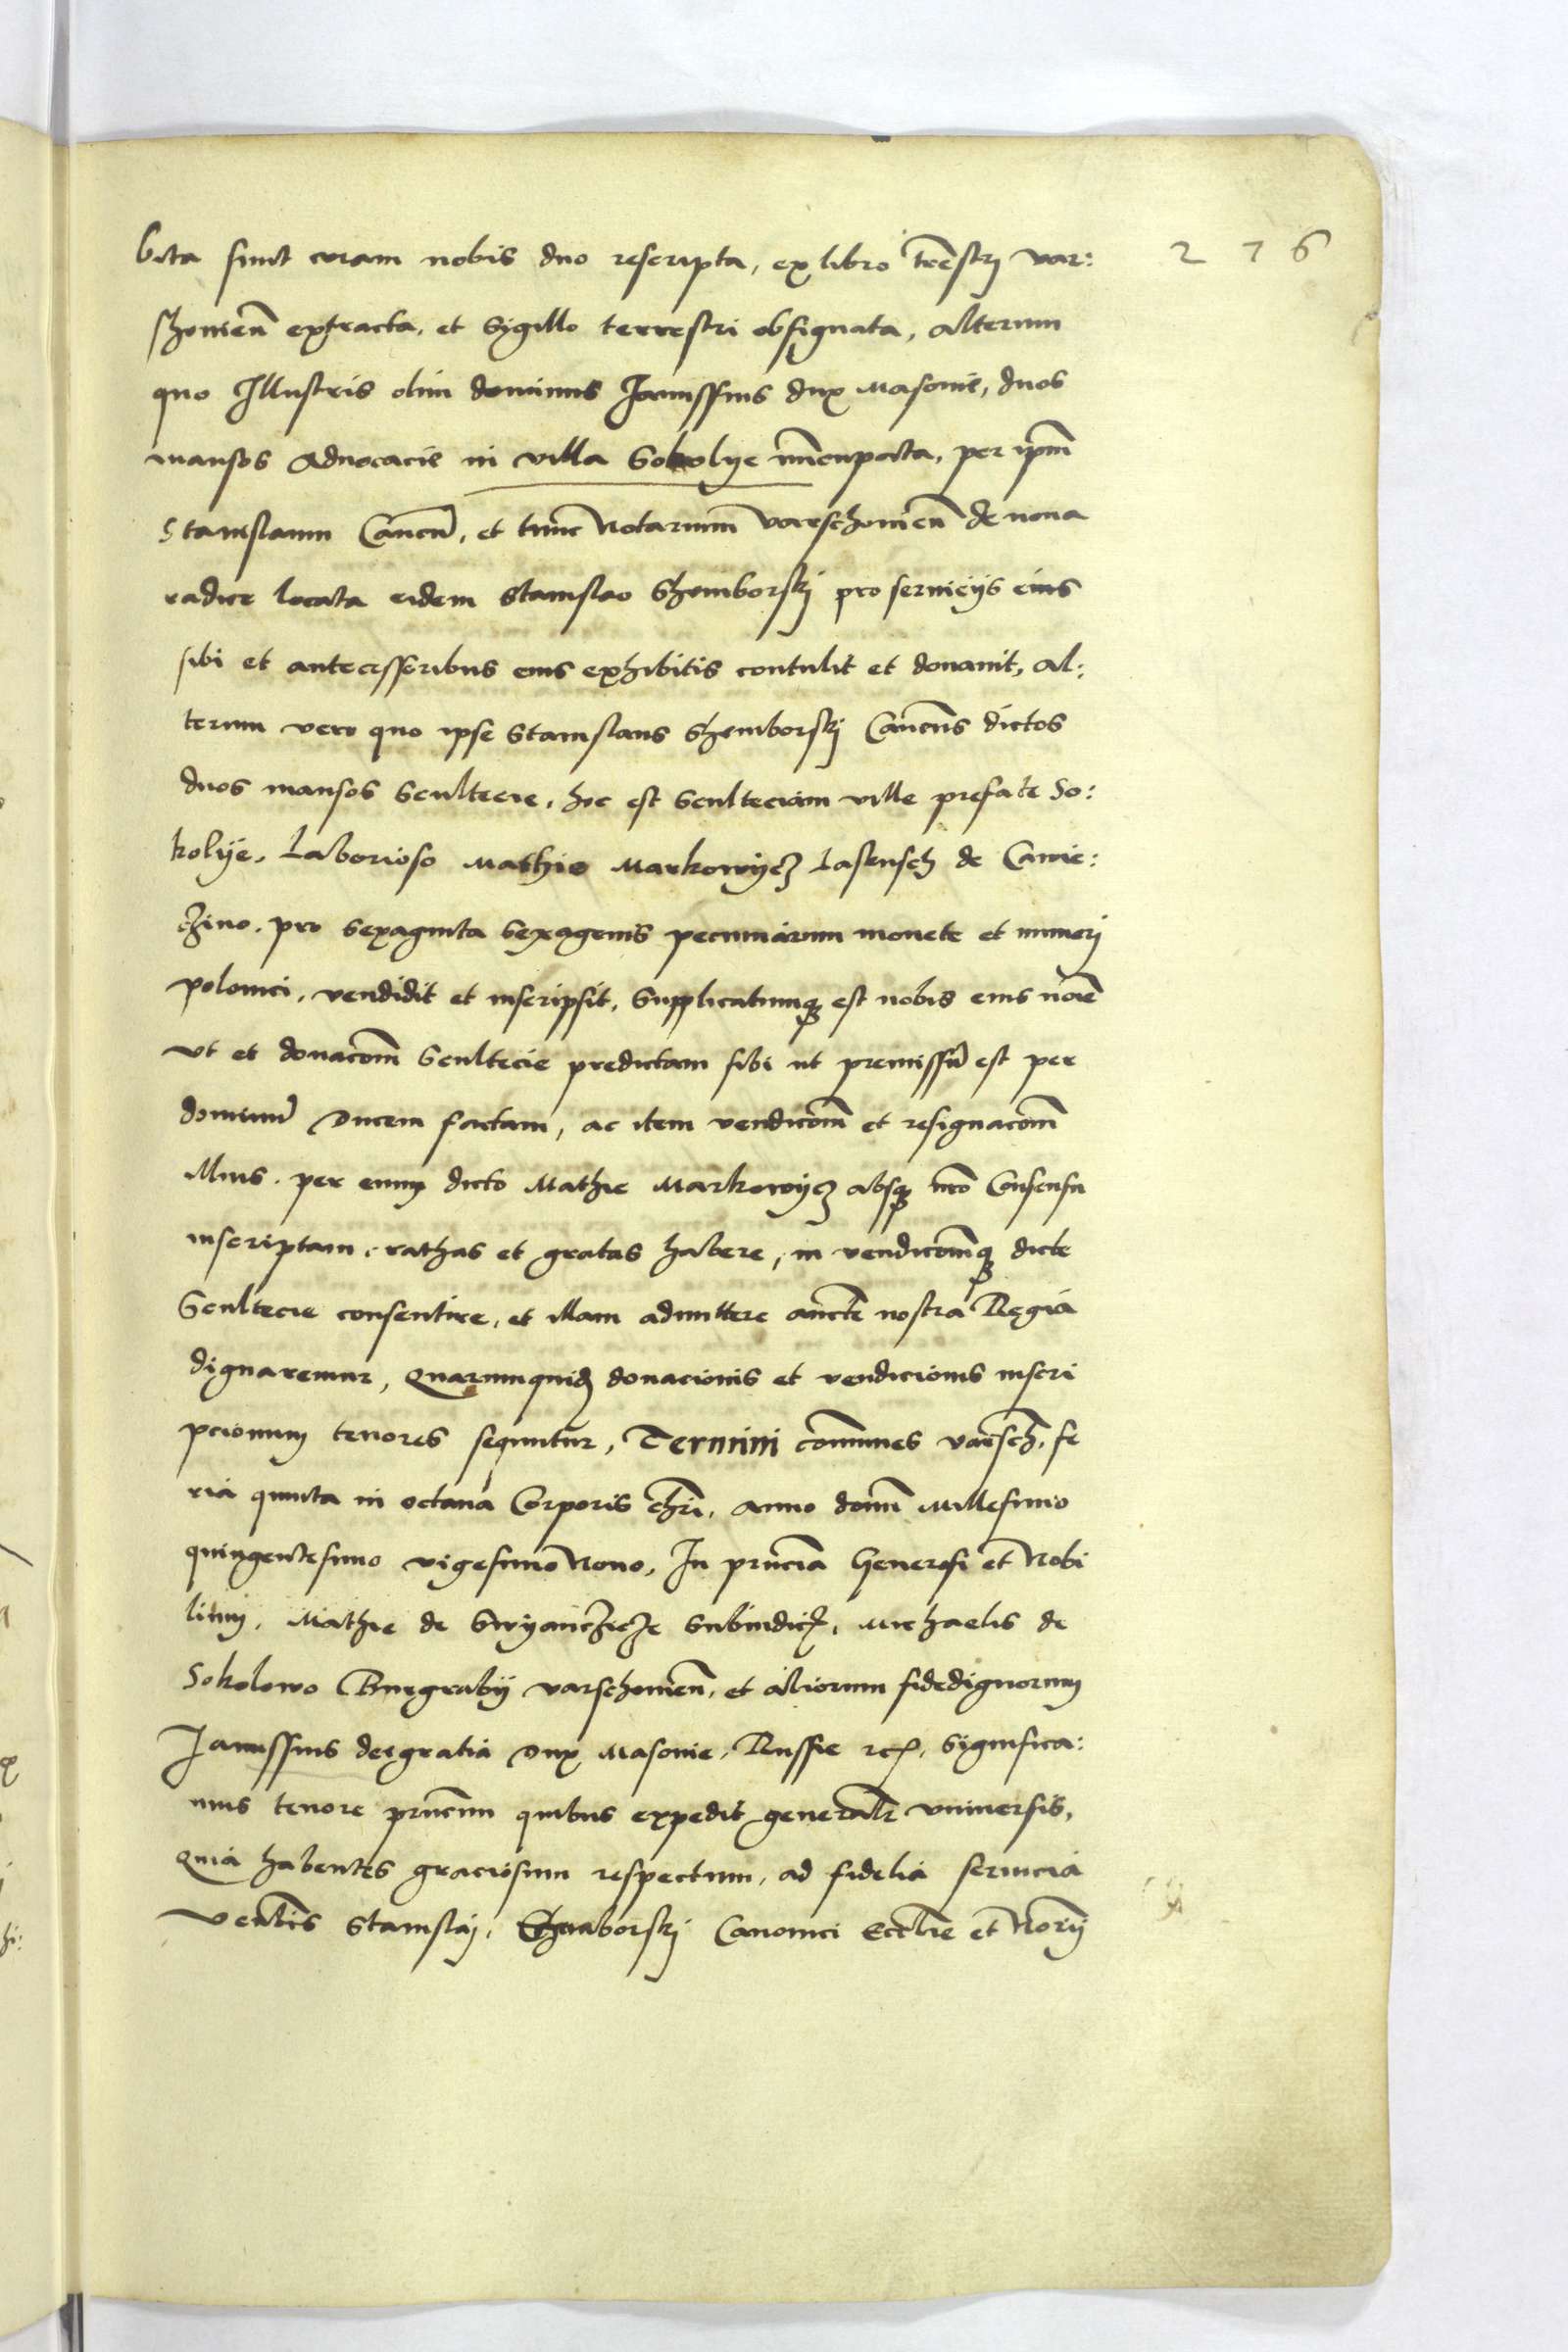 276
bita sunt coram nobis duo rescripta, ex libro trestrj var:
schouien̄ extracta, et sigillo terrestri obsignata, alterum
quo Illustris olim dominus Janussius dux Masouie, duos
mansos aduocacie in villa Sokolye nuncupata, per ipm̄
Stanislaum Cancūl, et tunc Notarium varschouien̄ de noua
radice locata eidem Stanislao Schemborskj pro seruicijs eius
sibi et antecessoribus eius exhibitis contulit et donauit, al:
terum vero quo ipse Stanislaus Schemborskj Canc̄us dictos
duos mansos Scultecie, hoc est Sculteciam ville prefate So:
kolye, Laborioso Mathie Markowycz Lasensch de Cawie:
czino, pro sexaginta sexagenis pecuniarum monete et numerj
polonici, vendidit et inscripsit, Supplicatumq3 est nobis eius noīe
vt et donacōm Scultecie predictam sibi ut premissū est per
dominū Ducem factam, ac item vendicōm et resignacōm
illius per eum dicto Mathie Markowycz absq3 nr̄o Consensu
inscriptam, rathas et gratas habere, in vendicōmq3 dicte
Scultecie consentire, et illam admittere aucte nostra Regia
dignaremur, Quarumquid donacionis et vendicionis inscri
pcionum tenores sequntur, Termini com̄unes varsch, fe
ria quinta in octaua Corporis chri, anno domī Millesimo
quingentesimo vigesimo Nono, In prn̄cia Generosi et Nobi
lium, Mathie de Swyanczicze Subiudicꝭ, Michaelis de
Sokolowo Burgrabij varschouien̄, et aliorum fidedignorum
Janussius dei gratia Dux Masouie, Russie rcꝭ, Significa:
mus tenore prn̄cium quibus expedit generalr vniuersis,
Quia habentes graciosum respectum, ad fidelia seruicia
Venlis Stanislaj, Schaborskj Canonici Ecclie et Norij